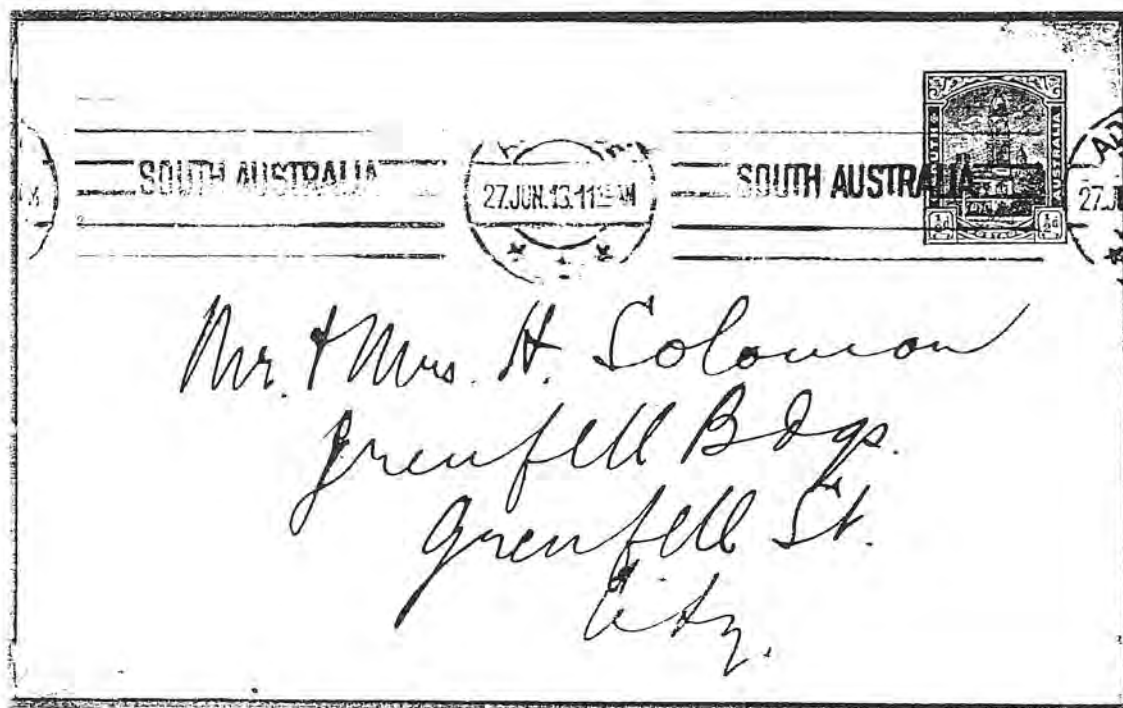 SOUTH AUSTRALIA
27.JUN.13.11
SOUTH AUSTRALIA
SOUTH AUSTRALIA
½d ½d
AD
27.JU
Mr. & Mrs. H. Solomon
Grenfell Bdgs.
Grenfell St.
City.